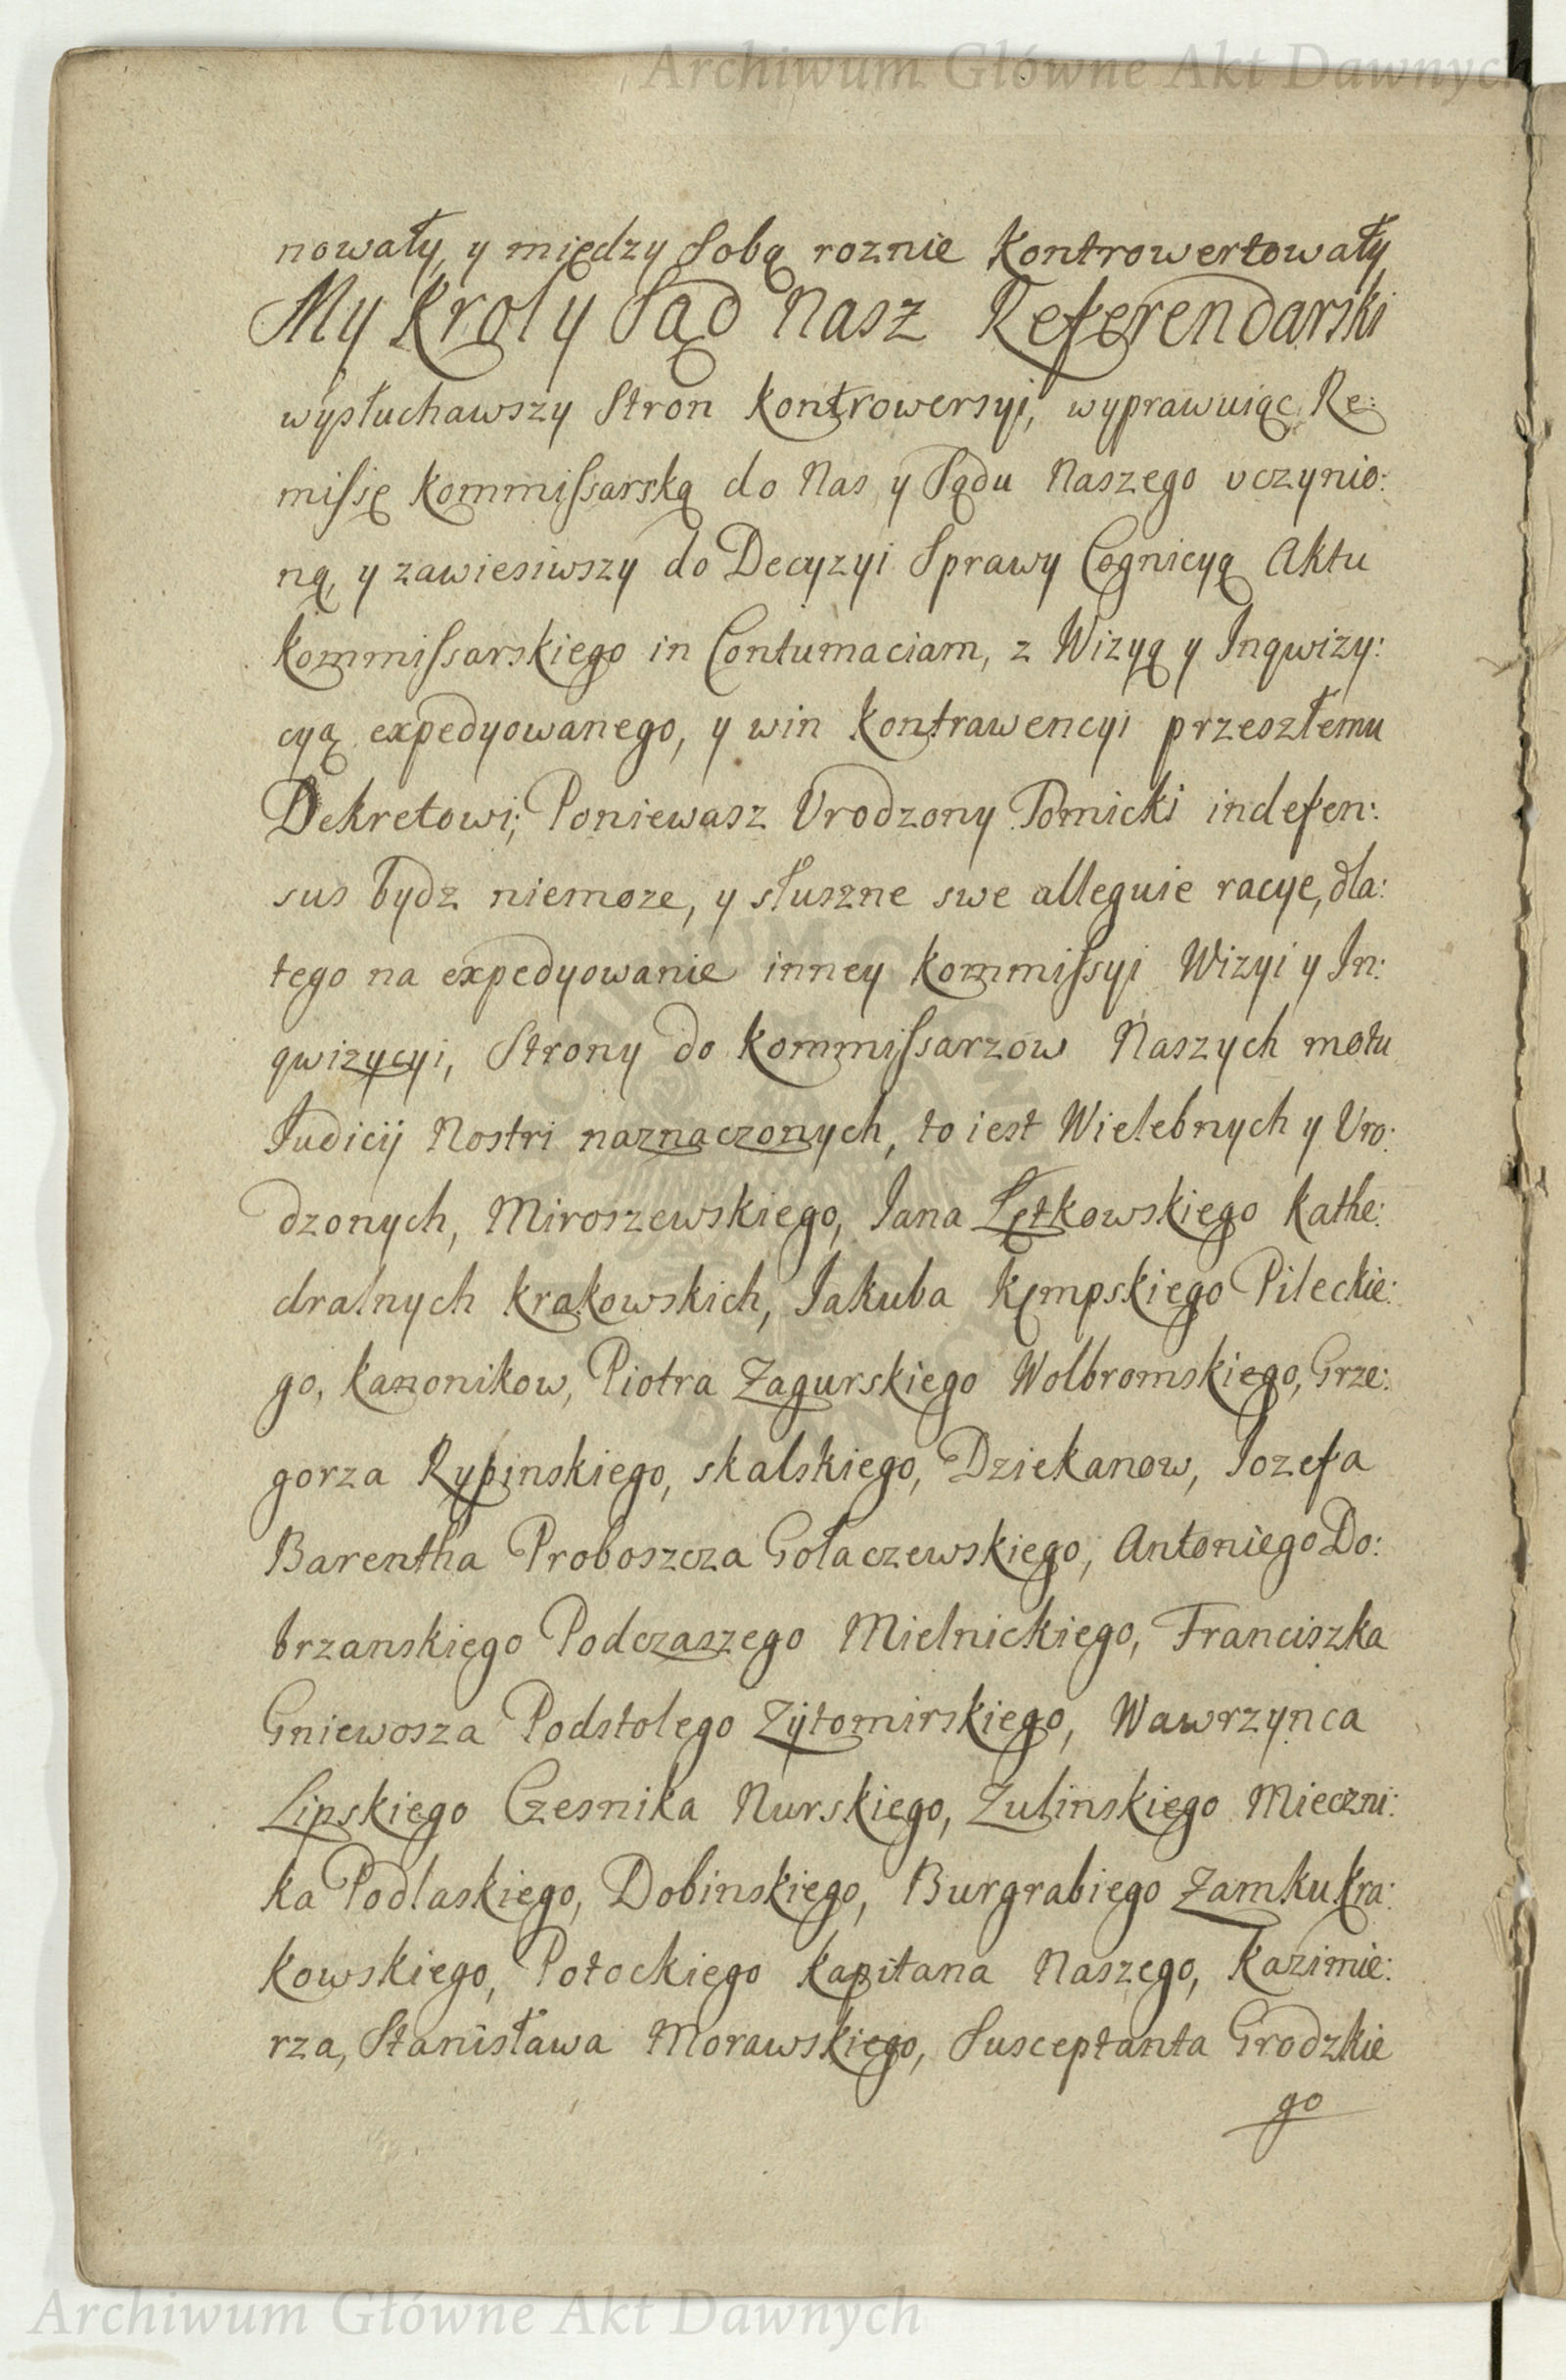 Archiwum Główne Akt Dawnych
nowały, y między sobą roznie kontrowertowały
My Krol y Sąd Nasz Referendarski
wysłuchawszy Stron kontrowersyi, wyprawuiąc Re:
missę kommissarską do Nas y Sądu Naszego uczynio:
ną, y zawiesiwszy do Decyzyi Sprawy Cognicyą Aktu
kommissarskiego in Contumaciam, z Wizyą y Inqwizy:
cyą expedyowanego, y win kontrawencyi przeszłemu
Dekretowi; Poniewasz Urodzony Pomicki indefen:
sus bydz niemoze, y słuszne swe alleguie racye, dla:
tego na expedyowanie inney kommissyi Wizyi y In:
qwizycyi, Strony do kommissarzow Naszych motu
Judicij Nostri naznaczonych, to iest Wielebnych y Uro:
dzonych, Miroszewskiego, Jana Łętkowskiego kathe:
dralnych krakowskich, Jakuba kęmpskiego Pileckie:
go, kanonikow, Piotra Zagurskiego Wolbromskiego, Grze:
gorza Rypinskiego, skalskiego, Dziekanow, Jozefa
Barentha Proboszcza Gołaczewskiego, Antoniego Do:
brzanskiego Podczaszego Mielnickiego, Franciszka
Gniewosza Podstolego Zÿtomirskiego, Wawrzynca
Lipskiego Czesnika Nurskiego, Zulinskiego Mieczni:
ka Podlaskiego, Dobinskiego, Burgrabiego Zamku kra:
kowskiego, Potockiego kapitana Naszego, kazimie:
rza, Stanisława Morawskiego, Susceptanta Grodzkie
go
Archiwum Główne Akt Dawnych